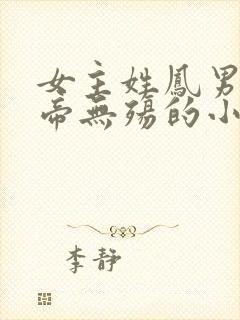 女主姓鳳男
帝無殤的小
李靜